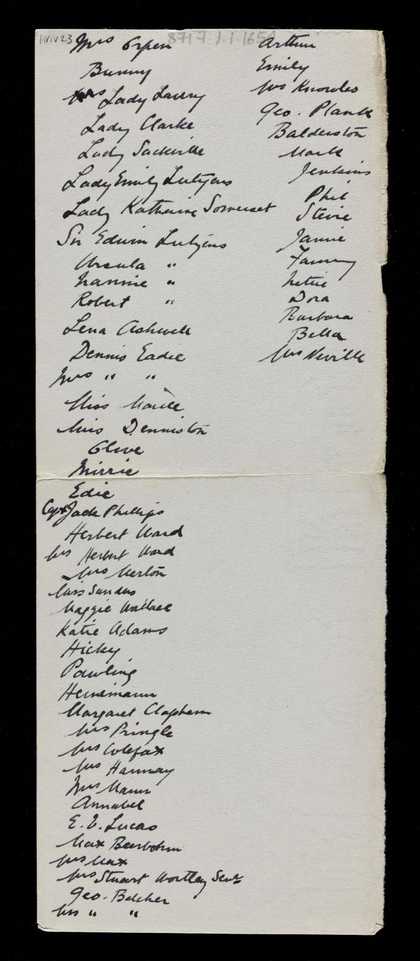 Mrs Orpen
Bunny
Lady Lavery
Lady Clarke
Lady Sackville
Lady Emily Lutyens
Lady Katharine Somerset
Sir Edwin Lutyens
Ursula "
Nannie "
Robert "
Lena Ashwell
Dennis Eadie
Mrs " "
Miss Maude
Miss Denniston
Clive
Mirrie
Edie
Capt Jack Phillips
Herbert Ward
Mrs Herbert Ward
Mrs Merton
Miss Sandus
Maggie Wallace
Katie Adams
Hicky
Pawling
Heinemann
Margaret Clapham
Mrs Pringle
Mrs Colefax
Mrs Hannay
Mrs Mann
Annabel
E. V. Lucas
Max Beerbohm
Mrs Max
Mrs Stuart Wortley Senr
Geo. Belcher
Mrs " "
8717.1.1.1654
Arthur
Emily
Mrs Knowles
Geo. Plank
Balderston
Mark
Jenkins
Phil
Stevie
Jamie
Fanny
Nettie
Dora
Barbara
Bella
Mrs Neville